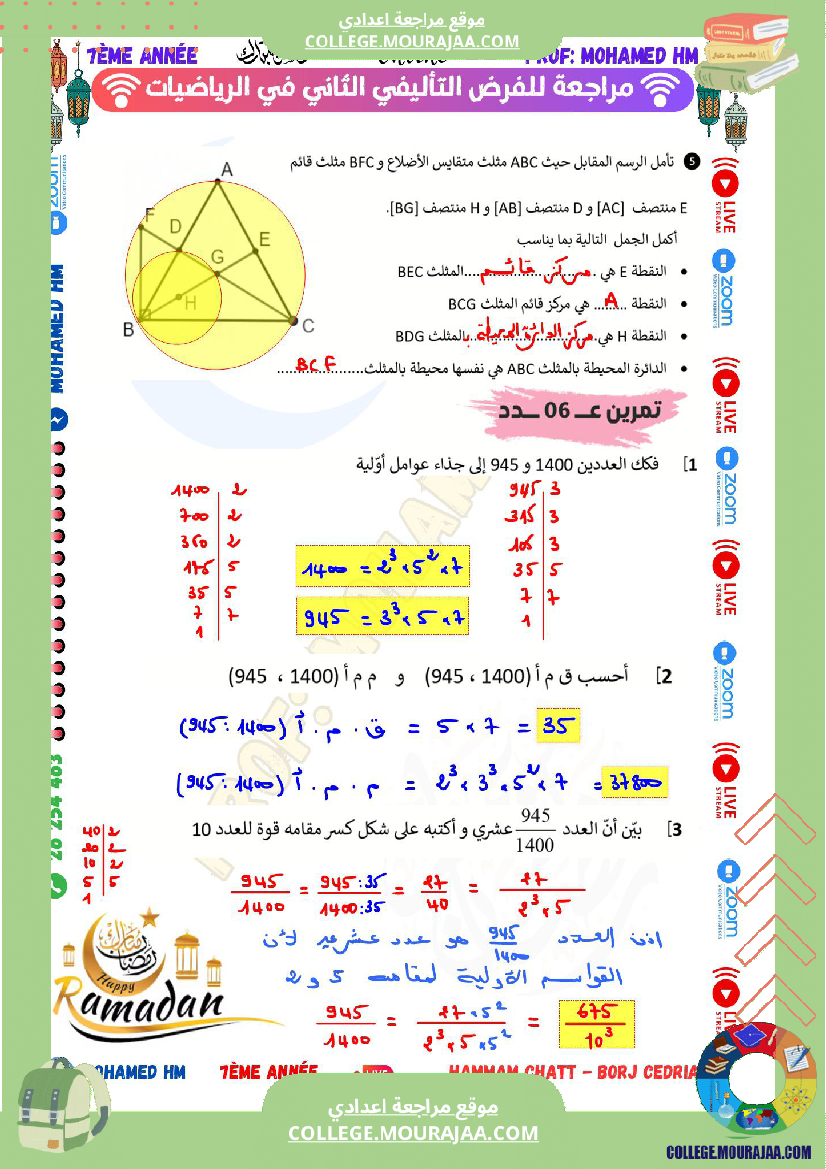 موقع مراجعة اعدادي
COLLEGE.MOURAJAA.COM
7ÈME ANNÉE
PROF: MOHAMED HM
مراجعة للفرض التأليفي الثاني في الرياضيات
5 تأمل الرسم المقابل حيث ABC مثلث متقايس الأضلاع و BFC مثلث قائم
E منتصف [AC] و D منتصف [AB] و H منتصف [BG].
أكمل الجمل التالية بما يناسب
• النقطة E هي .مركز قائم....المثلث BEC
• النقطة ..A.. هي مركز قائم المثلث BCG
• النقطة H هي.مركز الدائرة المحيطة بـ..بالمثلث BDG
• الدائرة المحيطة بالمثلث ABC هي نفسها محيطة بالمثلث....BCF....
A
F
D
E
G
H
B
C
تمرين عـــ 06 ـــدد
1] فكك العددين 1400 و 945 إلى جذاء عوامل أوّلية
1400 2
700 2
350 2
175 5
35 5
7 7
1
1400 = 2³ × 5² × 7
945 = 3³ × 5 × 7
945 3
315 3
105 3
35 5
7 7
1
2] أحسب ق م أ (1400 ، 945) و م م أ (1400 ، 945)
ق . م . أ (1400 : 945) = 5 × 7 = 35
م . م . أ (1400 : 945) = 2³ × 3³ × 5² × 7 = 37800
3] بيّن أنّ العدد 945/1400 عشري و أكتبه على شكل كسر مقامه قوة للعدد 10
40 2
20 2
10 2
5 5
1
945/1400 = 945:35/1400:35 = 27/40 = 27/2³×5
اذن العدد 945/1400 هو عدد عشري لأن
القواسم الأولية لمقامه 5 و 2
945/1400 = 27×5²/2³×5×5² = 675/10³
رمضان مبارك
Happy
Ramadan
MOHAMED HM
28 254 463
PROF: MOHAM
LIVE
STREAM
zoom
Video Communications
LIVE
STREAM
zoom
Video Communications
LIVE
STREAM
zoom
Video Communications
LIVE
STREAM
zoom
Video Communications
LIVE
STREAM
OHAMED HM
7ÈME ANNÉE
HAMMAM CHATT – BORJ CEDRIA
موقع مراجعة اعدادي
COLLEGE.MOURAJAA.COM
COLLEGE.MOURAJAA.COM